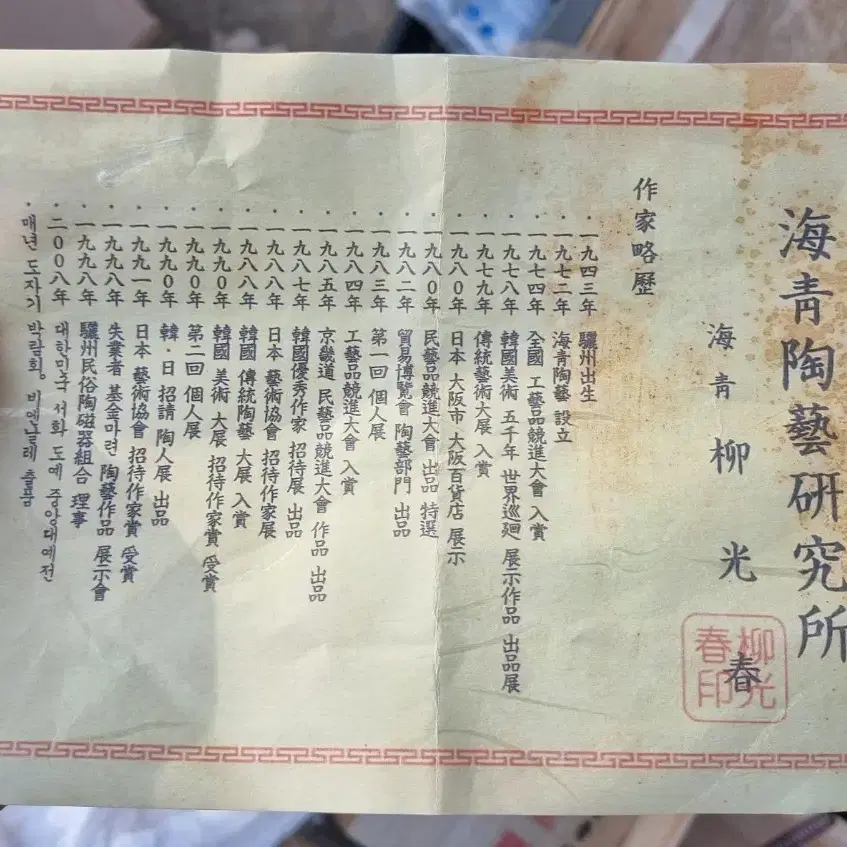 海靑陶藝研究所
海靑 柳光春
柳光春印
作家略歷
· 一九四三年 驪州出生
· 一九七二年 海靑陶藝 設立
· 一九七四年 全國 工藝品競進大會 入賞
· 一九七八年 韓國美術 五千年 世界巡廻 展示作品 出品展
· 一九七九年 傳統藝術大展 入賞
· 一九八0年 日本 大阪市 大阪百貨店 展示
· 一九八0年 民藝品競進大會 出品 特選
· 一九八二年 貿易博覽會 陶藝部門 出品
· 一九八三年 第一回 個人展
· 一九八四年 工藝品競進大會 入賞
· 一九八五年 京畿道 民藝品競進大會 作品 出品
· 一九八七年 韓國優秀作家 招待展 出品
· 一九八八年 日本 藝術協會 招待作家展
· 一九八八年 韓國 傳統陶藝 大展 入賞
· 一九九0年 韓國 美術 大展 招待作家賞 受賞
· 一九九0年 第二回 個人展
· 一九九0年 韓·日 招請 陶人展 出品
· 一九九一年 日本 藝術協會 招待作家賞 受賞
· 一九九八年 失業者 基金마련 陶藝作品 展示會
· 一九九八年 驪州民俗陶磁器組合 理事
· 二00八年 대한민국 서화 도예 중앙대예전
· 매년 도자기 박람회, 비엔날레 출품